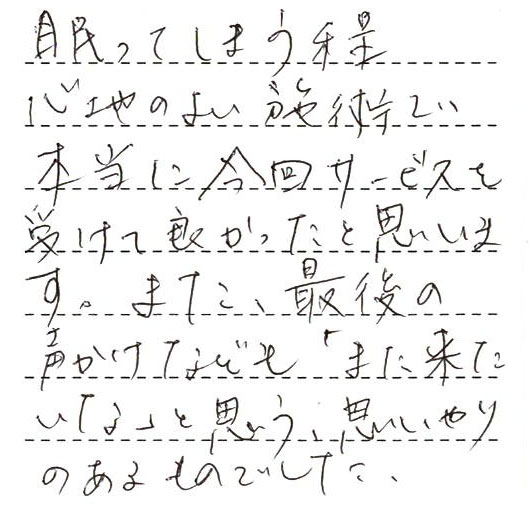 眠ってしまう程
心地のよい施術でい
本当に今回サービスを
受けて良かったと思いま
す。また、最後の
声かけなども「また来た
いな」と思う、思いやり
のあるものでした、